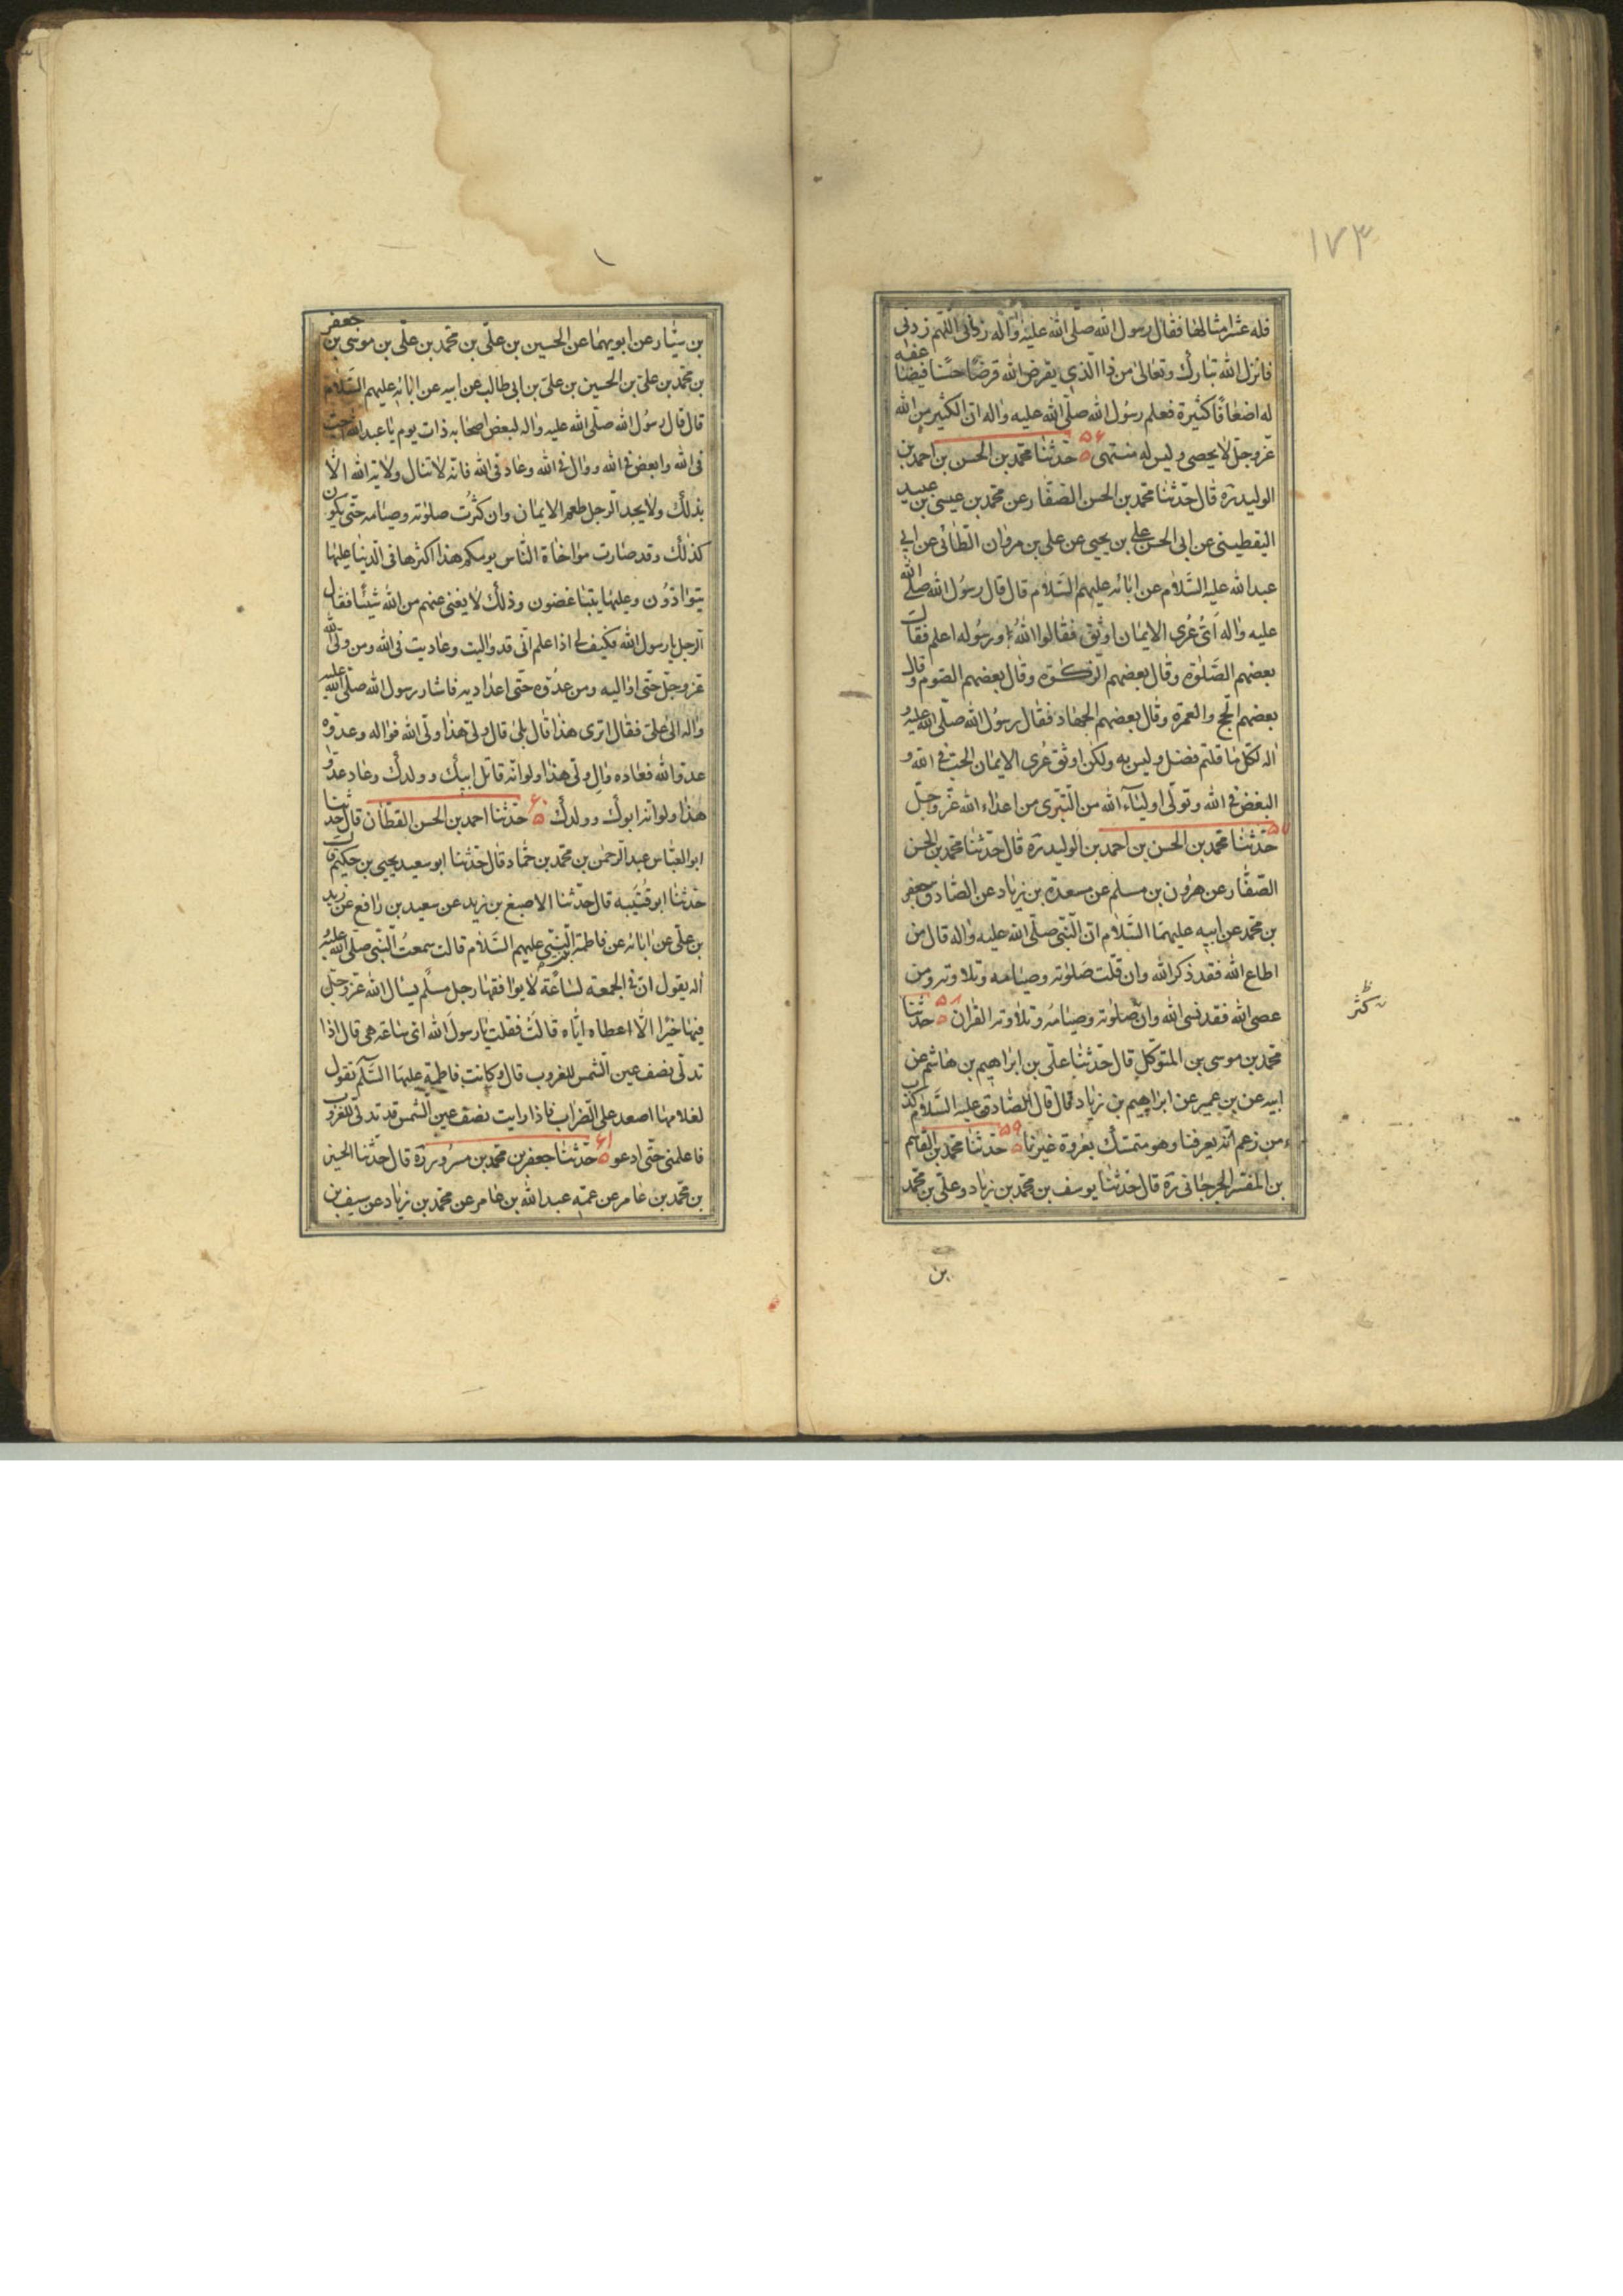 ١٧٣
فله عشر امثالها فقال رسول الله صلّى الله عليه وآله اللّهم زدنى
فانزل الله تبارك وتعالى من ذا الّذي يقرض الله قرضًا حسنًا فيضاعفه
له اضعافًا كثيرة فعلم رسول الله صلّى الله عليه واله انّ الكثير من الله
عزّوجلّ لا يحصى وليس له منتهى ۵۶ حدّثنا محمد بن الحسن بن احمد بن
الوليد ره قال حدّثنا محمد بن الحسن الصّفّار عن محمد بن عيسى بن عبيد
اليقطينى عن ابى الحسن على بن يحيى عن على بن مروان الطّائى عن ابى
عبد الله عليه السّلام عن ابائه عليهم السّلام قال قال رسول الله صلى الله
عليه واله اىّ عُرى الايمان اوثق فقالوا الله ورسوله اعلم فقال
بعضهم الصّلوة وقال بعضهم الزّكوة وقال بعضهم الصّوم وقال
بعضهم الحج والعمرة وقال بعضهم الجهاد فقال رسول الله صلّى الله عليه و
اله لكلّ ما قلتم فضل وليس به ولكن اوثق عُرى الايمان الحبّ فى الله و
البغض فى الله وتولّى اولياء الله من التّبرّى من اعداء الله عزّوجلّ
۵۷ حدّثنا محمد بن الحسن بن احمد بن الوليد ره قال حدّثنا محمد بن الحسن
الصّفّار عن هرون بن مسلم عن مسعدة بن زياد عن الصّادق جعفر
بن محمد عن ابيه عليهما السّلام انّ النّبى صلّى الله عليه واله قال من
اطاع الله فقد ذكر الله وان قلّت صلوته وصيامه وتلاوته ومن
عصى الله فقد نسى الله وان صلوته وصيامه وتلاوته القران ۵۸ حدّثنا
ن كثر ظ
محمد بن موسى بن المتوكل قال حدّثنا علىّ بن ابراهيم بن هاشم عن
ابيه عن بن عمير عن ابراهيم بن زياد قال قال الصّادق عليه السّلام كذب
من زعم انّه يعرفنا وهو متمسّك بعروة غيرنا ۵۹ حدّثنا محمد بن القاسم
بن المفسّر الجرجانى ره قال حدّثنا يوسف بن محمد بن زياد وعلىّ بن محمد
بن
بن سيّار عن ابويهما عن الحسين بن علىّ بن محمد بن علىّ بن موسى بن جعفر
بن محمد بن على بن الحسين بن على بن ابى طالب عن ابيه عن ابائه عليهم السّلام
قال قال رسول الله صلّى الله عليه واله لبعض اصحابه ذات يوم يا عبد الله احبب
فى الله وابغض فى الله ووال فى الله وعاد فى الله فانّه لا تنال ولاية الله الّا
بذلك ولا يجد الرّجل طعم الايمان وان كثرت صلوته وصيامه حتى يكون
كذلك وقد صارت مواخاة النّاس يومكم هذا اكثرها فى الدّنيا عليها
يتوادّون وعليها يتباغضون وذلك لا يغنى عنهم من الله شيئًا فقال
الرّجل يا رسول الله فكيف لى اذا علم انّى قد واليت وعاديت فى الله ومن ولىّ الله
عزوجلّ حتى اواليه ومن عدوّه حتى اعاديه فاشار رسول الله صلّى الله عليه
واله الى على فقال اترى هذا قال بلى قال ولىّ هذا ولىّ الله فواله وعدوّه
عدوّ الله فعاده وال ولىّ هذا ولو انّه قاتل ابيك وولدك وعاد عدوّ
هذا ولو انّه ابوك وولدك ۶۰ حدّثنا احمد بن الحسن القطّان قال حدّثنا
ابو العبّاس عبد الرّحمن بن محمد بن حمّاد قال حدّثنا ابو سعيد يحيى بن حكيم قال
حدّثنا ابو قُتَيبه قال حدّثنا الاصبغ بن زيد عن سعيد بن رافع عن زيد
بن علىّ عن ابائه عن فاطمة بنت النّبى عليهم السّلام قالت سمعتُ النّبى صلى الله عليه و
اله يقول انّ فى الجمعة لساعة لا يوافقها رجل مسلم يسال الله عزوجل
فيها خيرا الّا اعطاه ايّاه قالت فقلت يا رسول الله اىّ ساعة هى قال اذا
تدلّى نصف عين الشّمس للغروب قال وكانت فاطمة عليها السّلم تقول
لغلامها اصعد على الضراب فاذا رايت نصف عين الشّمس قد تدلّى للغروب
فاعلمنى حتى ادعو ۶۱ حدّثنا جعفر بن محمد بن مسرور ره قال حدّثنا الحسين
بن محمد بن عامر عن عمّه عبد الله بن عامر عن محمد بن زياد عن سيف بن